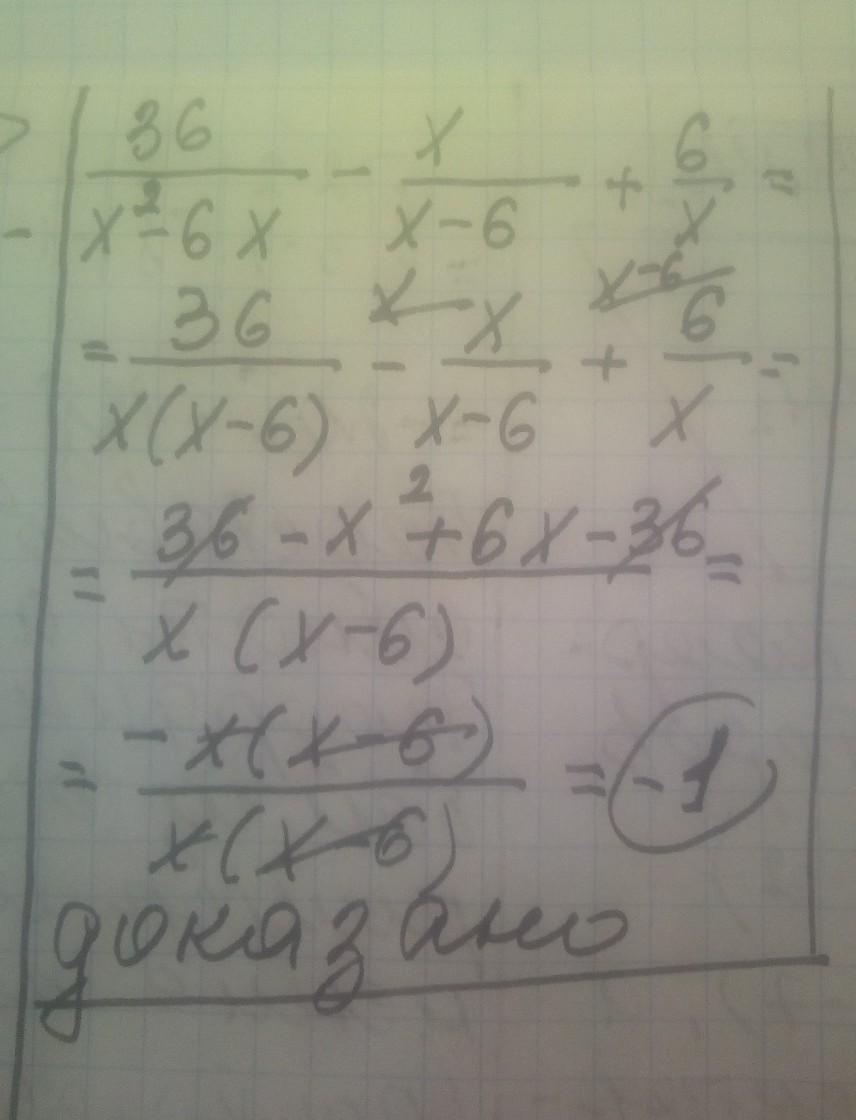 36/(x²-6x) - x/(x-6) + 6/x =
= 36/(x(x-6)) - x/(x-6) + 6/x =
= (36 - x² + 6x - 36)/(x(x-6)) =
= -x(x-6)/(x(x-6)) = -1
доказано